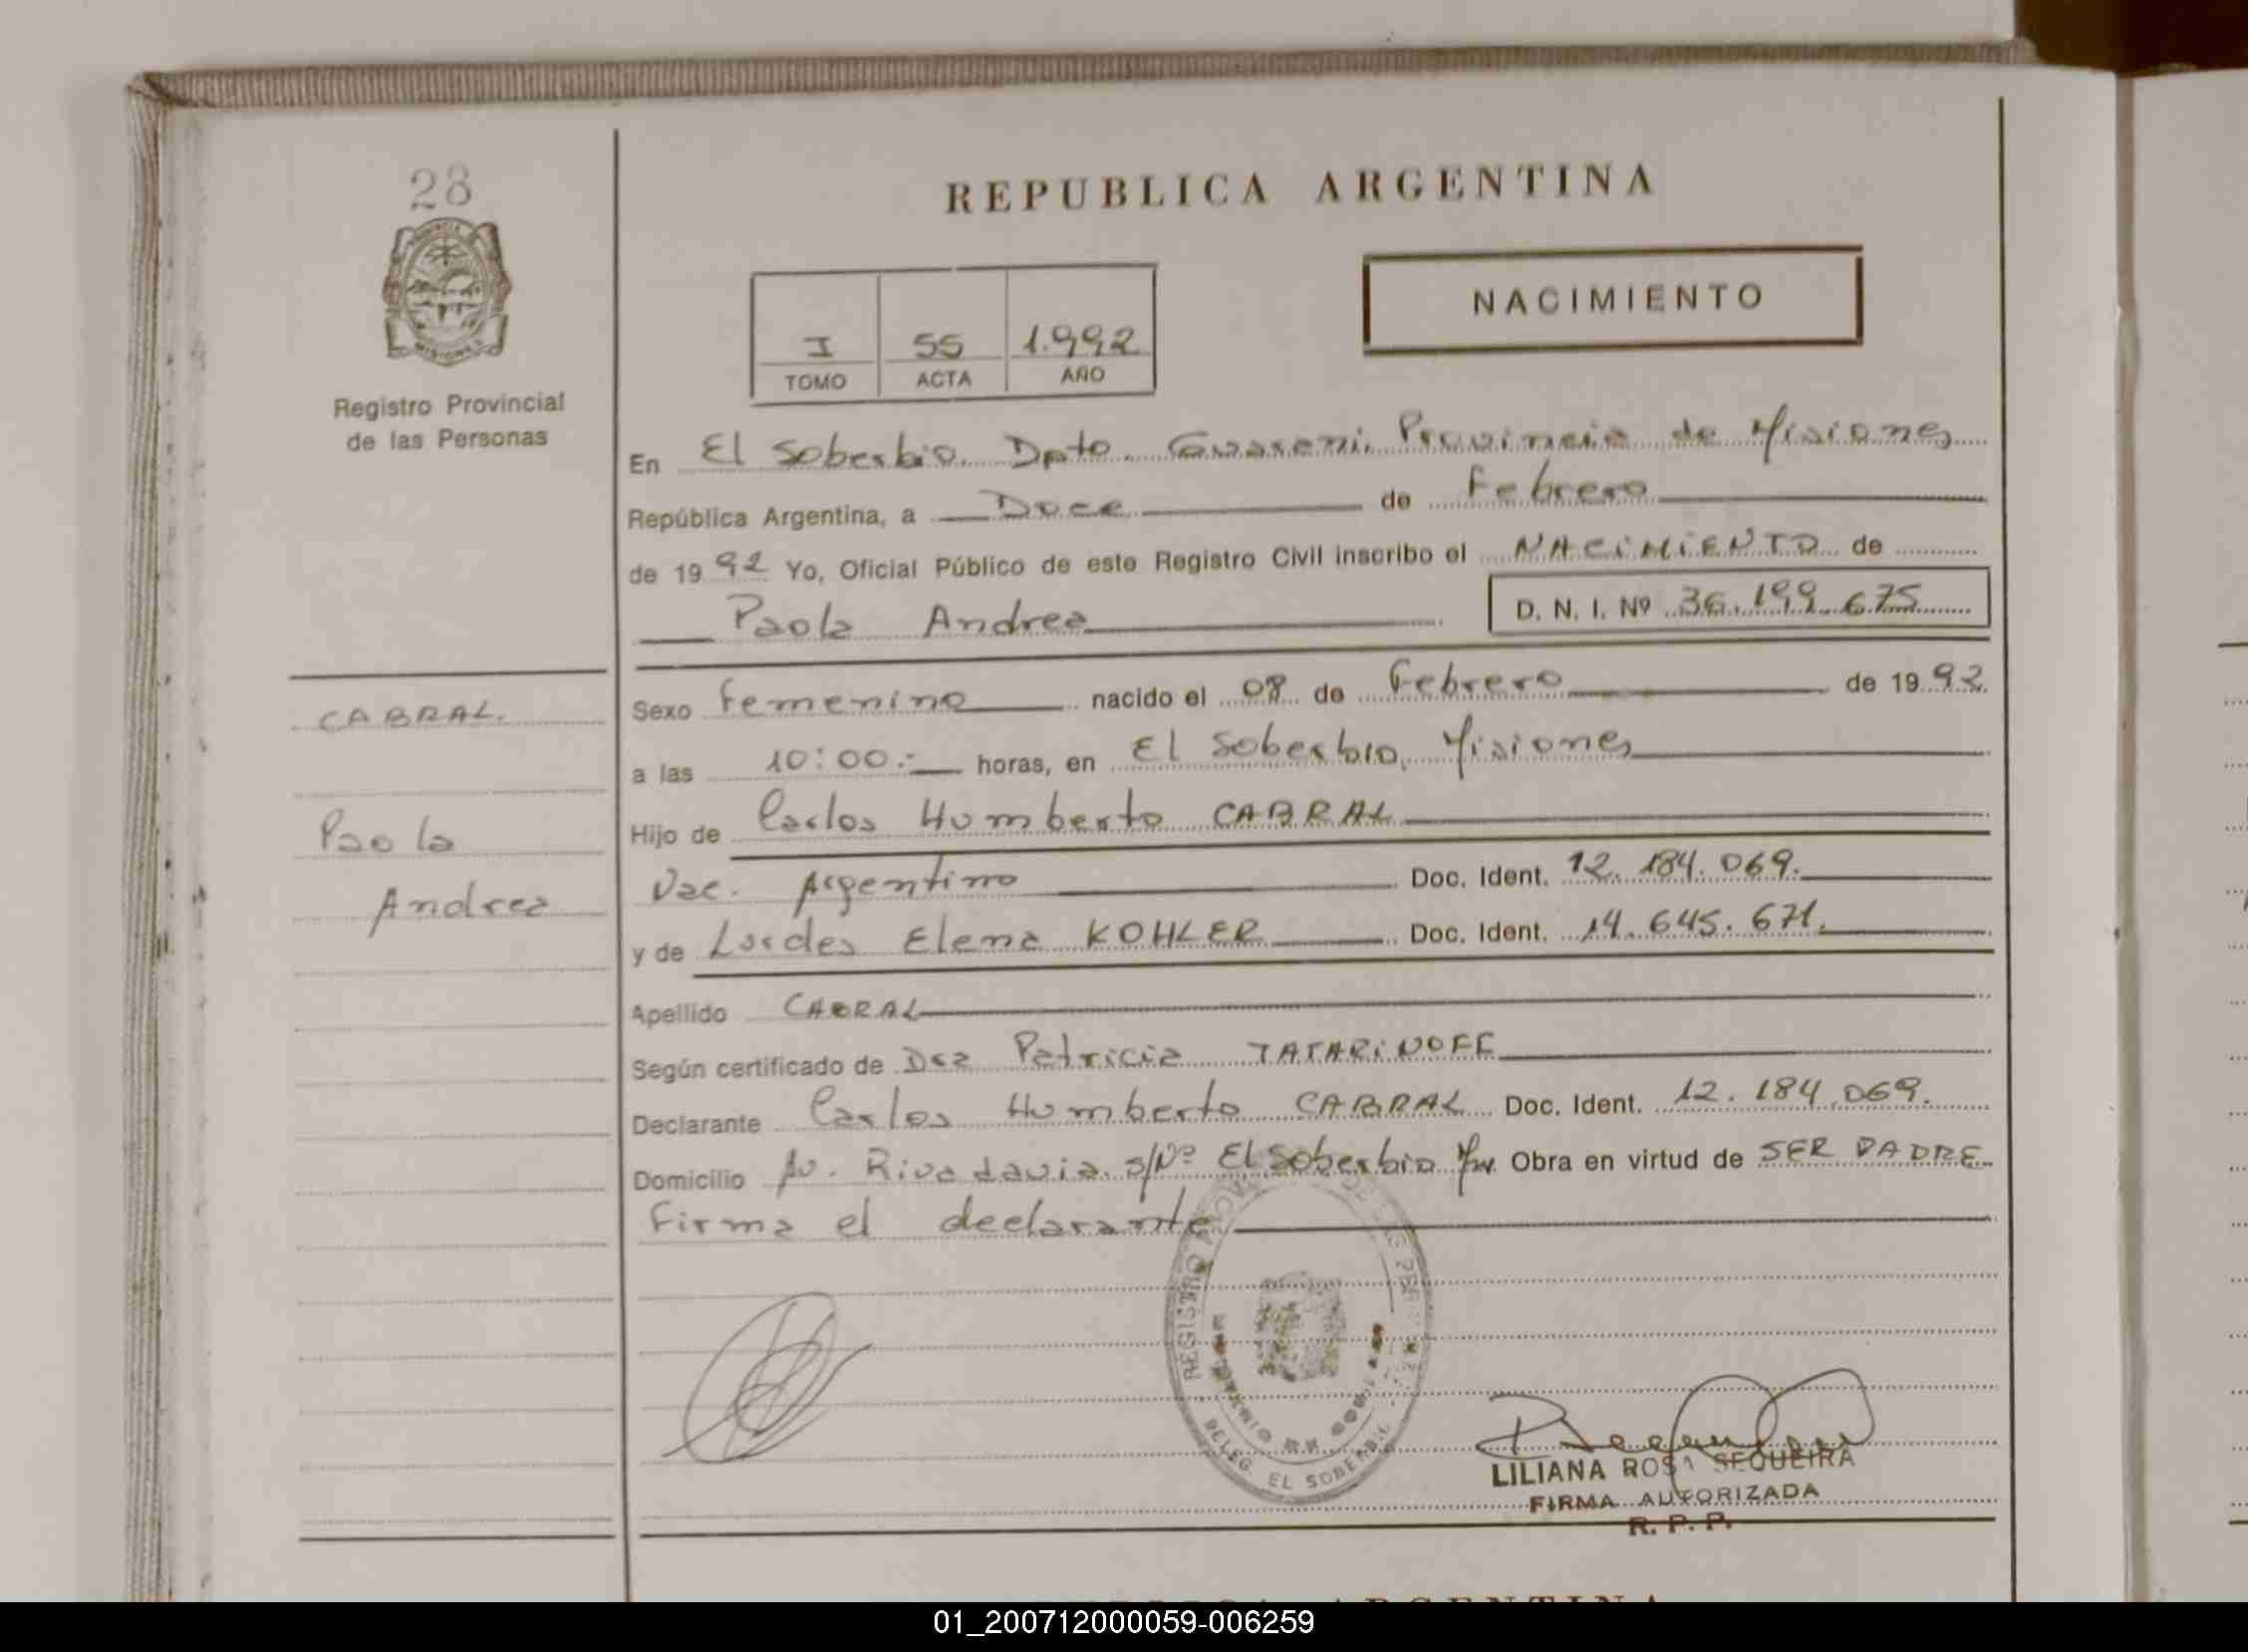 28
MISIONES
Registro Provincial
de las Personas
CABRAL.
Paola
Andrea
REPUBLICA ARGENTINA
NACIMIENTO
I 55 1.992
TOMO ACTA AÑO
En El Soberbio. Dpto. Guarani. Provincia de Misiones
República Argentina, a Doce de Febrero
de 1992 Yo, Oficial Público de este Registro Civil inscribo el NACIMIENTO de
Paola Andrea D. N. I. Nº 36.199.675
Sexo Femenino nacido el 08 de Febrero de 1992.
a las 10:00.- horas, en El Soberbio, Misiones
Hijo de Carlos Humberto CABRAL
Nac. Argentino Doc. Ident. 12.184.069.
y de Lurdes Elena KOHLER Doc. Ident. 14.645.671.
Apellido CABRAL
Según certificado de Dra Patricia TATARINOFF
Declarante Carlos Humberto CABRAL Doc. Ident. 12.184.069.
Domicilio Av. Rivadavia s/Nº El Soberbio Obra en virtud de SER PADRE
Firma el declarante
REGISTRO DE LAS
DELEG. EL SOBERBIO
LILIANA ROSA SEQUEIRA
FIRMA AUTORIZADA
R. P. P.
01_200712000059-006259